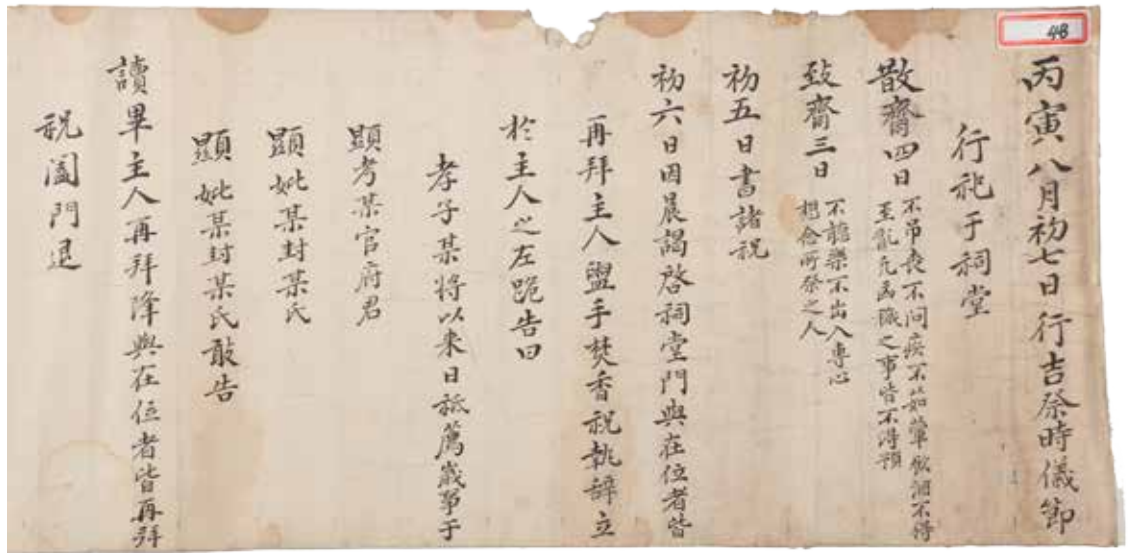 48
丙寅八月初七日行吉祭時儀節
行祀于祠堂
散齋四日 不吊喪不問疾不茹葷飲酒不得
至亂凡凶穢之事皆不得預
致齋三日 不聽樂不出入專心
想念所祭之人
初五日書諸祝
初六日因晨謁啓祠堂門與在位者皆
再拜主人盥手焚香祝執辭立
於主人之左跪告曰
孝子某將以來日祗薦歲事于
顯考某官府君
顯妣某封某氏
顯妣某封某氏敢告
讀畢主人再拜降與在位者皆再拜
祝闔門退